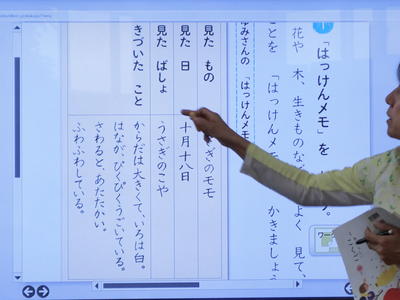 「はっけんメモ」を
花や 木、生きものな よく 見て、
ことを 「はっけんメモ かきましょう
ゆみさんの 「はっけんメモ
見た もの ぎのモモ
見た 日 十月十八日
見た ばしょ うさぎのこや
きづいた こと からだは大きくて、いろは白。
はなが、ぴくぴくうごいている。
さわると、あたたかい。
ふわふわしている。